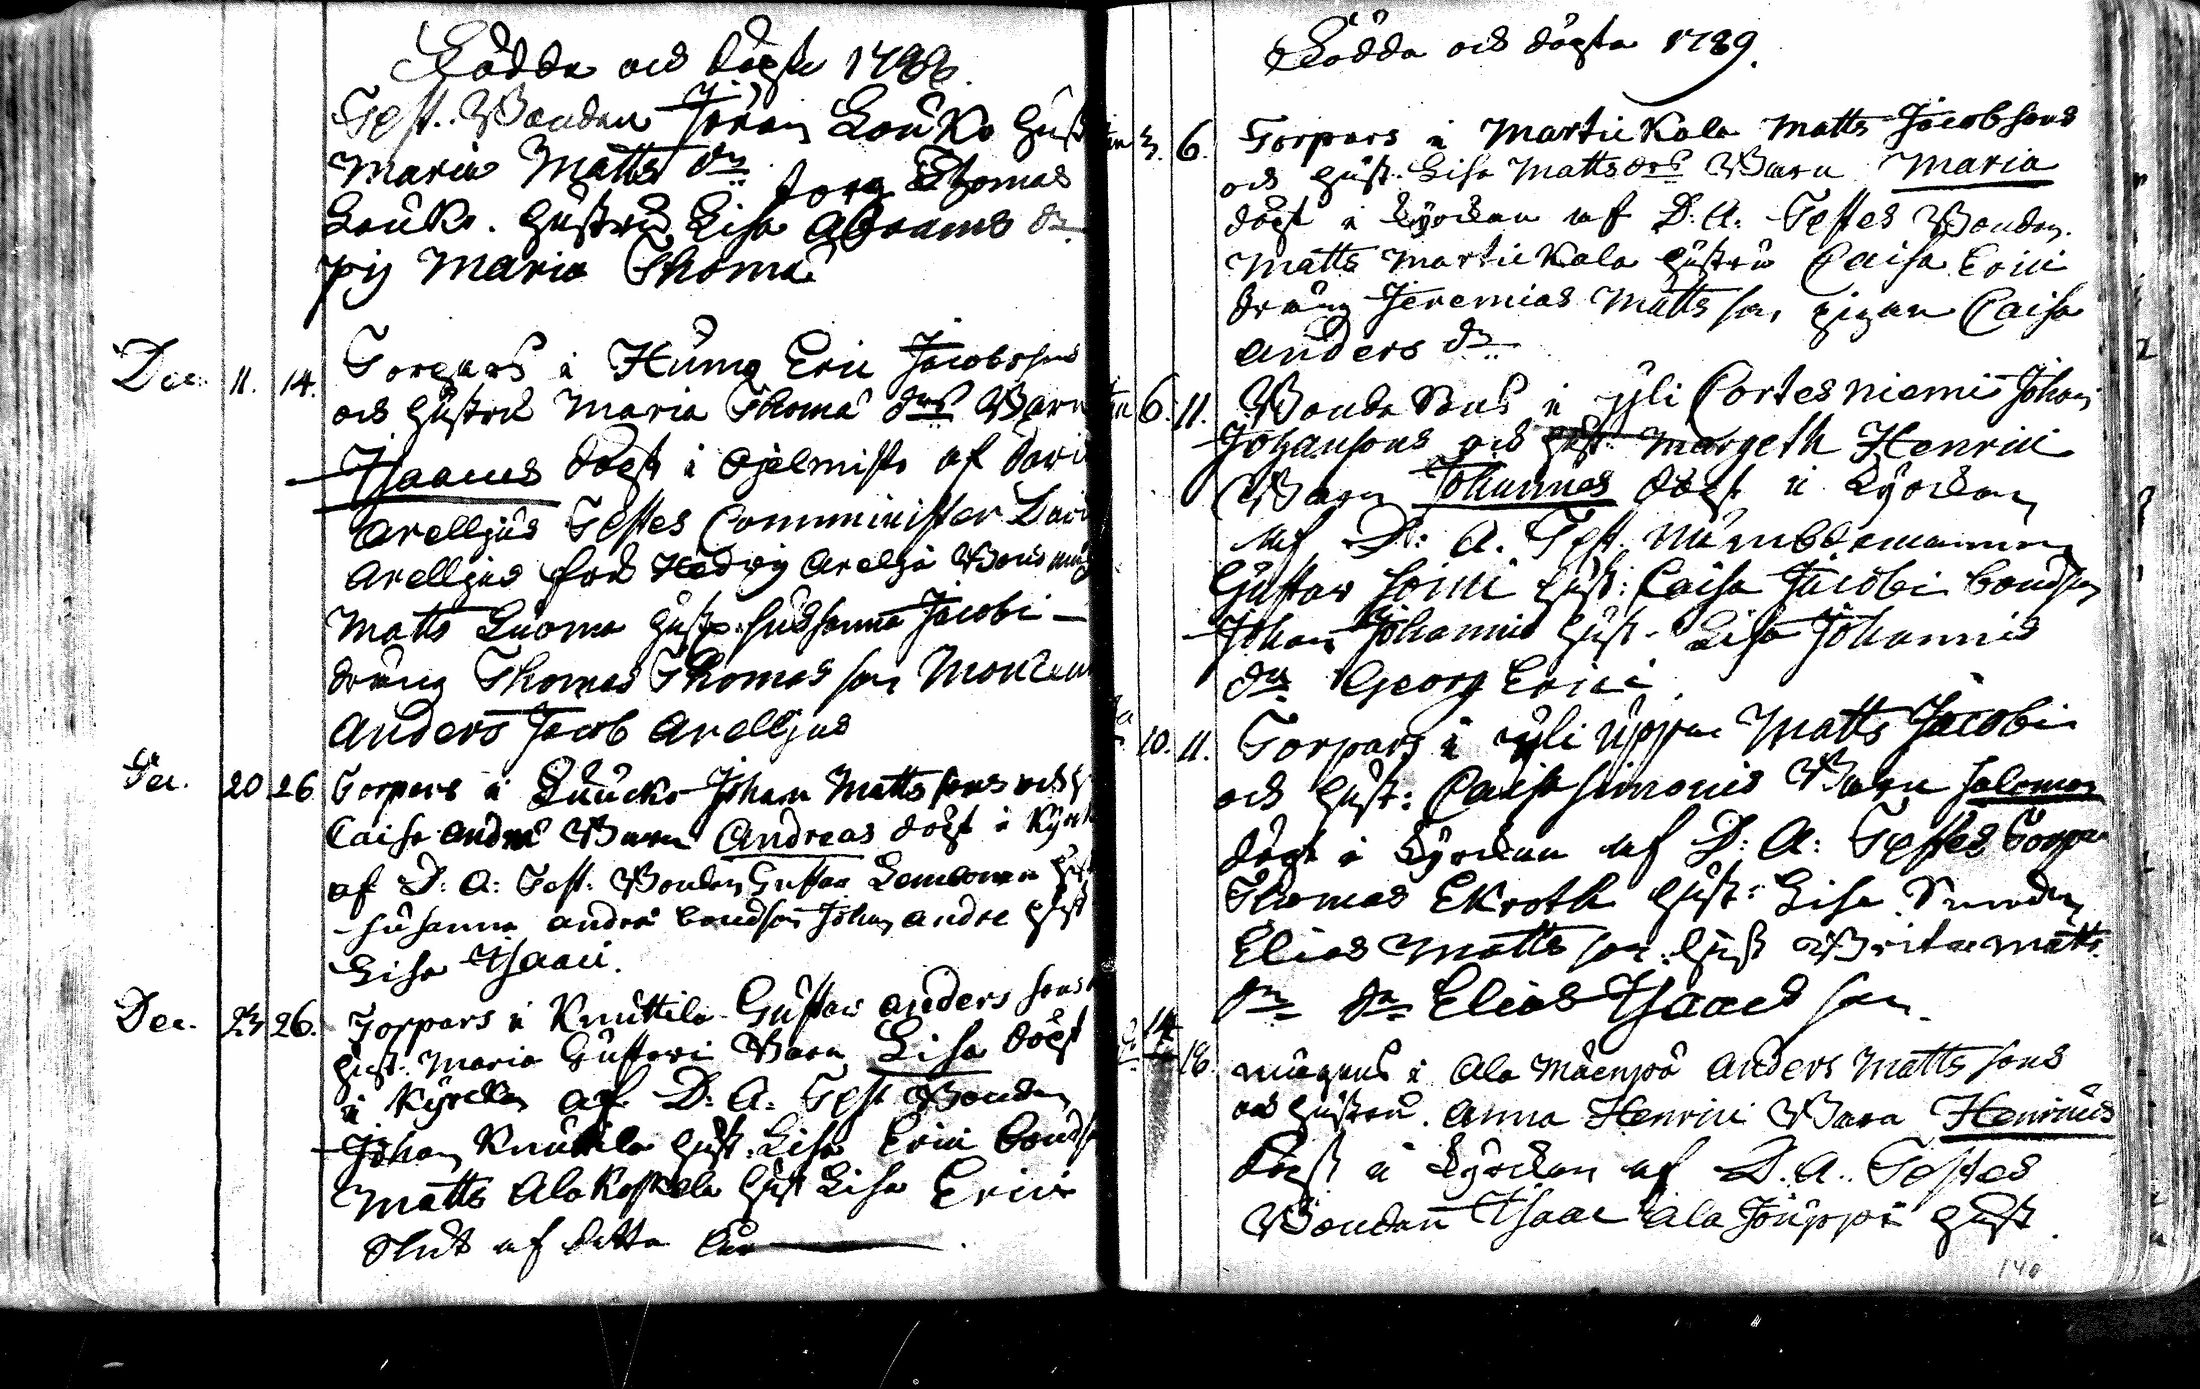 Födda och döpta 1788.
Test. Bonden Jöran Louko hust
Maria Matts dr
Torp Thomas
Louko. hustru Lisa Abrams dr
pig Maria Thomæ
Dec. 11. 14. Torpars i Huma Eric Jacobssons
och hustru Maria Thomæ drs Barn
Isaacus döpt i af Davi
Arelljus Testes Comminister Davi
Arelljus fru Hedvig Arelljā
Matts Luoma hust. Susanna Jacobi
dräng Thomas Thomas son
Anders Jacob Arelljus
Dec. 20 26 Torpars i Luucko Johan Matts sons och h
Caisa Andræ Barn Andreas döpt i Kyrk
af D: A: Test: Bonden Gustav hust
Susanna Andræ bondson Johan Andræ hust
Lisa Isaaci.
Dec. 23 26. Torpars i Knuttila Gustav Anders sons
hust. Maria Gustavi Barn Lisa döpt
i Kyrckan af D: A: Test Bonden
Johan Knuttila hust. Lisa Erici bonds
Matts Alakoskela hust Lisa Erici
Slut af detta åhr
Födda och döpta 1789.
3. 6. Torpars i Martickala Matts Jacobsons
och hust. Lisa Matts drs Barn Maria
döpt i Kyrckan af D: A. Testes Bonden
Matts Martickala hustru Caisa Erici
dräng Jeremias Matts son pigan Caisa
Anders dr
6. 11. Bonda Sons i yli Cortesniemi Johan
Johansons och hust. Margeth Henrici
Barn Johannes döpt i Kyrckan
af D: A. Test. Nämndemannen
Gustav Soini hust: Caisa Jacobi bondson
Johan Johannis hust. Lisa Johannis
dr Georg Erici
10. 11. Torpars i yli uppa Matts Jacobi
och hust: Caisa Simonis Barn Salomon
döpt i Kyrckan af D: A: Testes Torpar
Thomas Ekroth hust: Lisa
Elias Matts son hust Brita Matts
dr dr Elias Isaacs son
14 18. i Ala Mäenpä Anders Matts sons
och hustru. Anna Henrici Barn Henricus
döpt i Kyrckan af D. A. Testes
Bonden Isaac Ala Jouppi hust
140